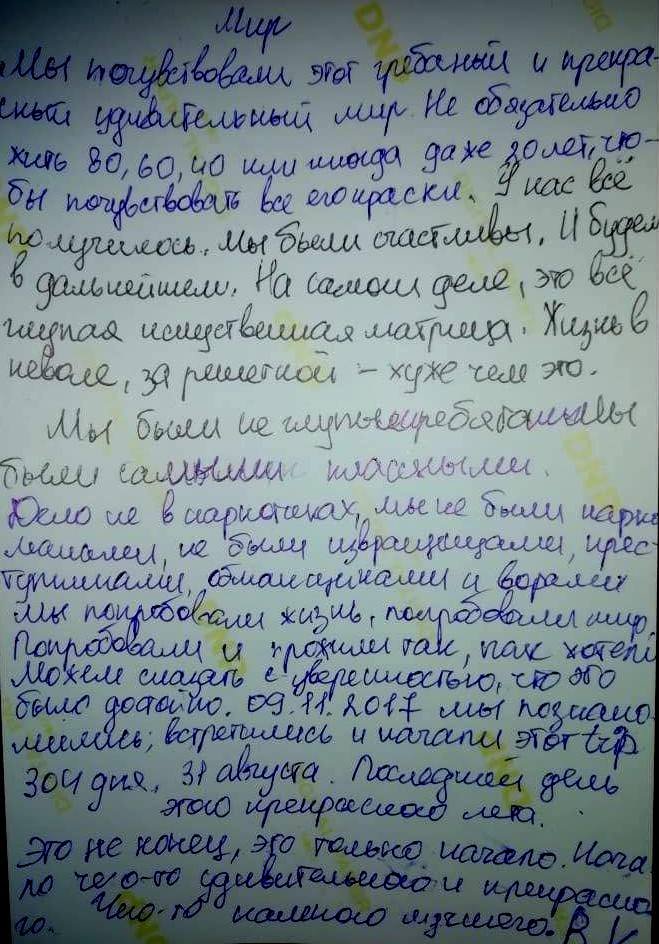 Мир
Мы почувствовали этот гребаный и прекра-
сный удивительный мир. Не обязательно
жить 80, 60, 40 или иногда даже 20 лет, что-
бы почувствовать все его краски. У нас всё
получилось. Мы были счастливы. И будем
в дальнейшем. На самом деле, это всё
глупая исскуственная матрица. Жизнь в
неволе, за решеткой – хуже чем это.
Мы были не глупыми ребятами. Мы
были самыми классными.
Дело не в наркотиках, мы не были нарко
манами, не были извращенцами, прес-
тупниками, обманщиками и ворами
Мы попробовали жизнь, попробовали мир.
Попробовали и прожили так, как хотели
Можем сказать с уверенностью, что это
было достойно. 09.11.2017 мы познако-
мились; встретились и начали этот trip
304 дня, 31 августа. Последний день
этого прекрасного лета.
Это не конец, это только начало. Нача-
ло чего-то удивительного и прекрасно
го. Чего-то намного лучшего. R V
DNP
DNP
DNP
DNP